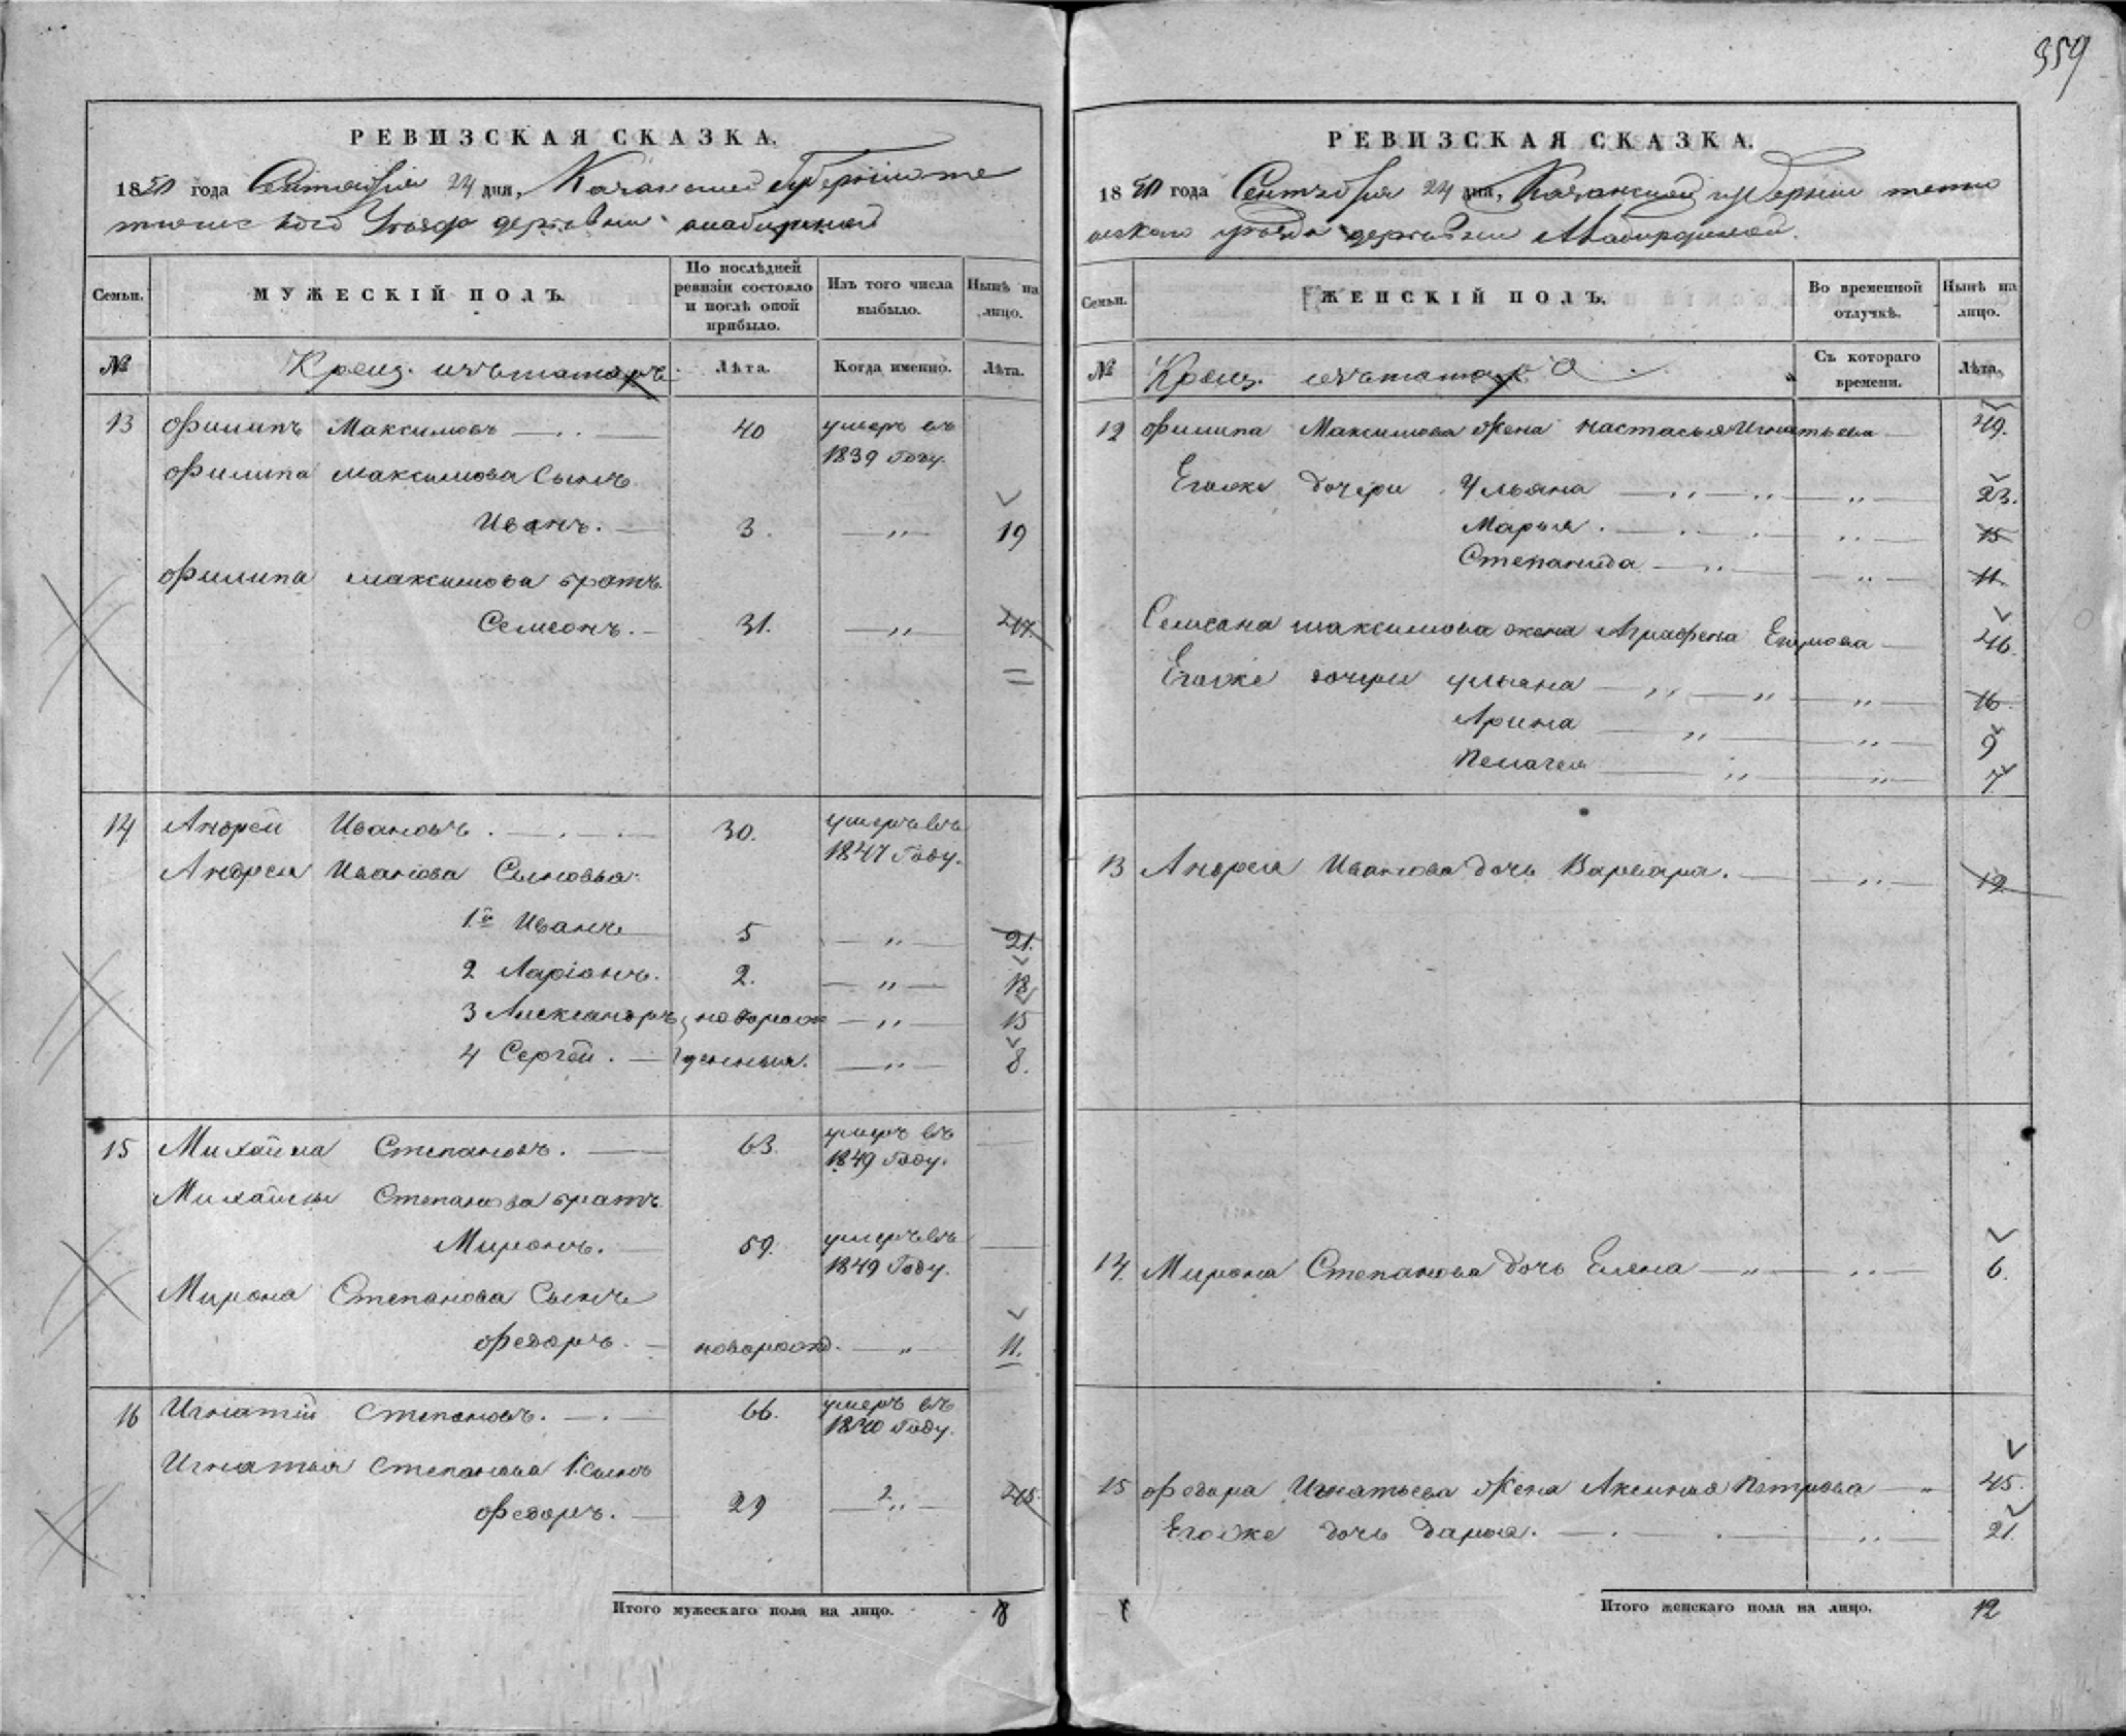 359
РЕВИЗСКАЯ СКАЗКА.
1850 года Сентября 24 дня, Казанской Губернии те
тюшского Уезда деревни
Семьи.
МУЖЕСКІЙ ПОЛЪ.
По послѣдней ревизіи состояло и послѣ оной прибыло.
Изъ того числа выбыло.
Нынѣ на лицо.
№ Крещ. изъ татаръ Лѣта. Когда именно. Лѣта.
13 Филипъ Максимовъ 40 умеръ въ
1839 Году.
Филипа Максимова Сынъ
Иванъ. 3. 19
Филипа Максимова братъ
Семеонъ. 31. 47.
14 Андрей Ивановъ. 30. умеръ въ
1847 Году.
Андрея Иванова Сыновья:
1й Иванъ 5 21.
2 Ларіонъ. 2. 18
3 Александръ новорож 15
4 Сергей. денныя. 8.
15 Михайла Степановъ. 63. умеръ въ
1849 Году.
Михайлы Степанова братъ
Миронъ. 59. умеръ въ
1849 Году.
Мирона Степанова Сынъ
Федоръ. новорожд. 11.
16 Игнатій Степановъ. 66. умеръ въ
1840 Году.
Игнатья Степанова 1. сынъ
Федоръ. 29 45.
Итого мужескаго пола на лицо. 8
РЕВИЗСКАЯ СКАЗКА.
1850 года Сентября 24 дня, Казанской губерніи тетю
шскаго уѣзда деревни
Семьи.
ЖЕНСКІЙ ПОЛЪ.
Во временной отлучкѣ.
Нынѣ на лицо.
№ Крещ. изъ татаръ Съ котораго времени. Лѣта.
12 Филипа Максимова Жена Настасья Игнатьева 49.
Егоже дочери Ульяна 23.
Марья. 15
Степанида 11.
Семеона максимова жена Аграфена Егорова 46.
Егоже дочери ульяна 16.
Арина 9
Пелагея 7
13 Андрея Иванова дочь Варвара. 12
14. Мирона Степанова дочь Елена 6.
15 Федора Игнатьева Жена Аксинья Петрова 45.
Егоже дочь Дарья. 21.
Итого женскаго пола на лицо. 12